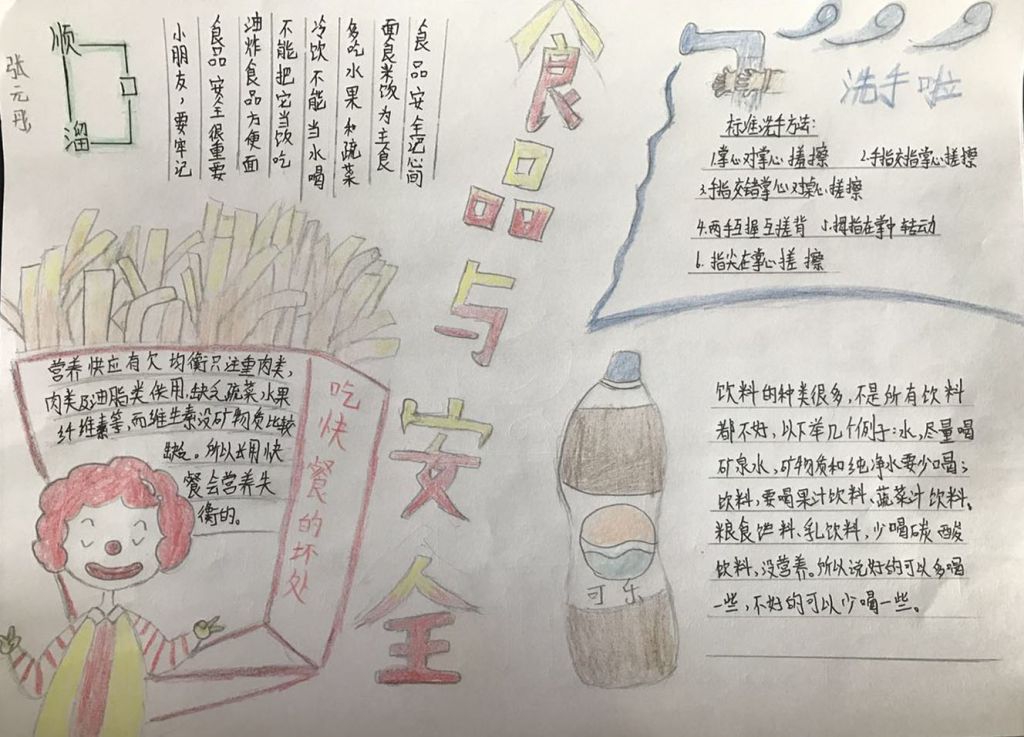 食品与安全
张元彤
顺口溜
食品安全记心间
面食米饭为主食
多吃水果和蔬菜
冷饮不能当水喝
不能把它当饭吃
油炸食品方便面
食品安全很重要
小朋友，要牢记
洗手啦
标准洗手方法：
1.掌心对掌心搓擦 2.手指交指掌心搓擦
3.手指交错掌心对掌心搓擦
4.两手互握互搓背 5.拇指在掌中转动
6.指尖在掌心搓擦
吃快餐的坏处
营养供应有欠均衡只注重肉类，
肉类及油脂类使用，缺乏蔬菜水果
纤维素等，而维生素没矿物质比较
缺乏。所以长用快
餐会营养失
衡的。
可乐
饮料的种类很多，不是所有饮料
都不好，以下举几个例子：水，尽量喝
矿泉水，矿物质和纯净水要少喝；
饮料，要喝果汁饮料、蔬菜汁饮料、
粮食饮料、乳饮料，少喝碳酸
饮料，没营养。所以说好的可以多喝
一些，不好的可以少喝一些。